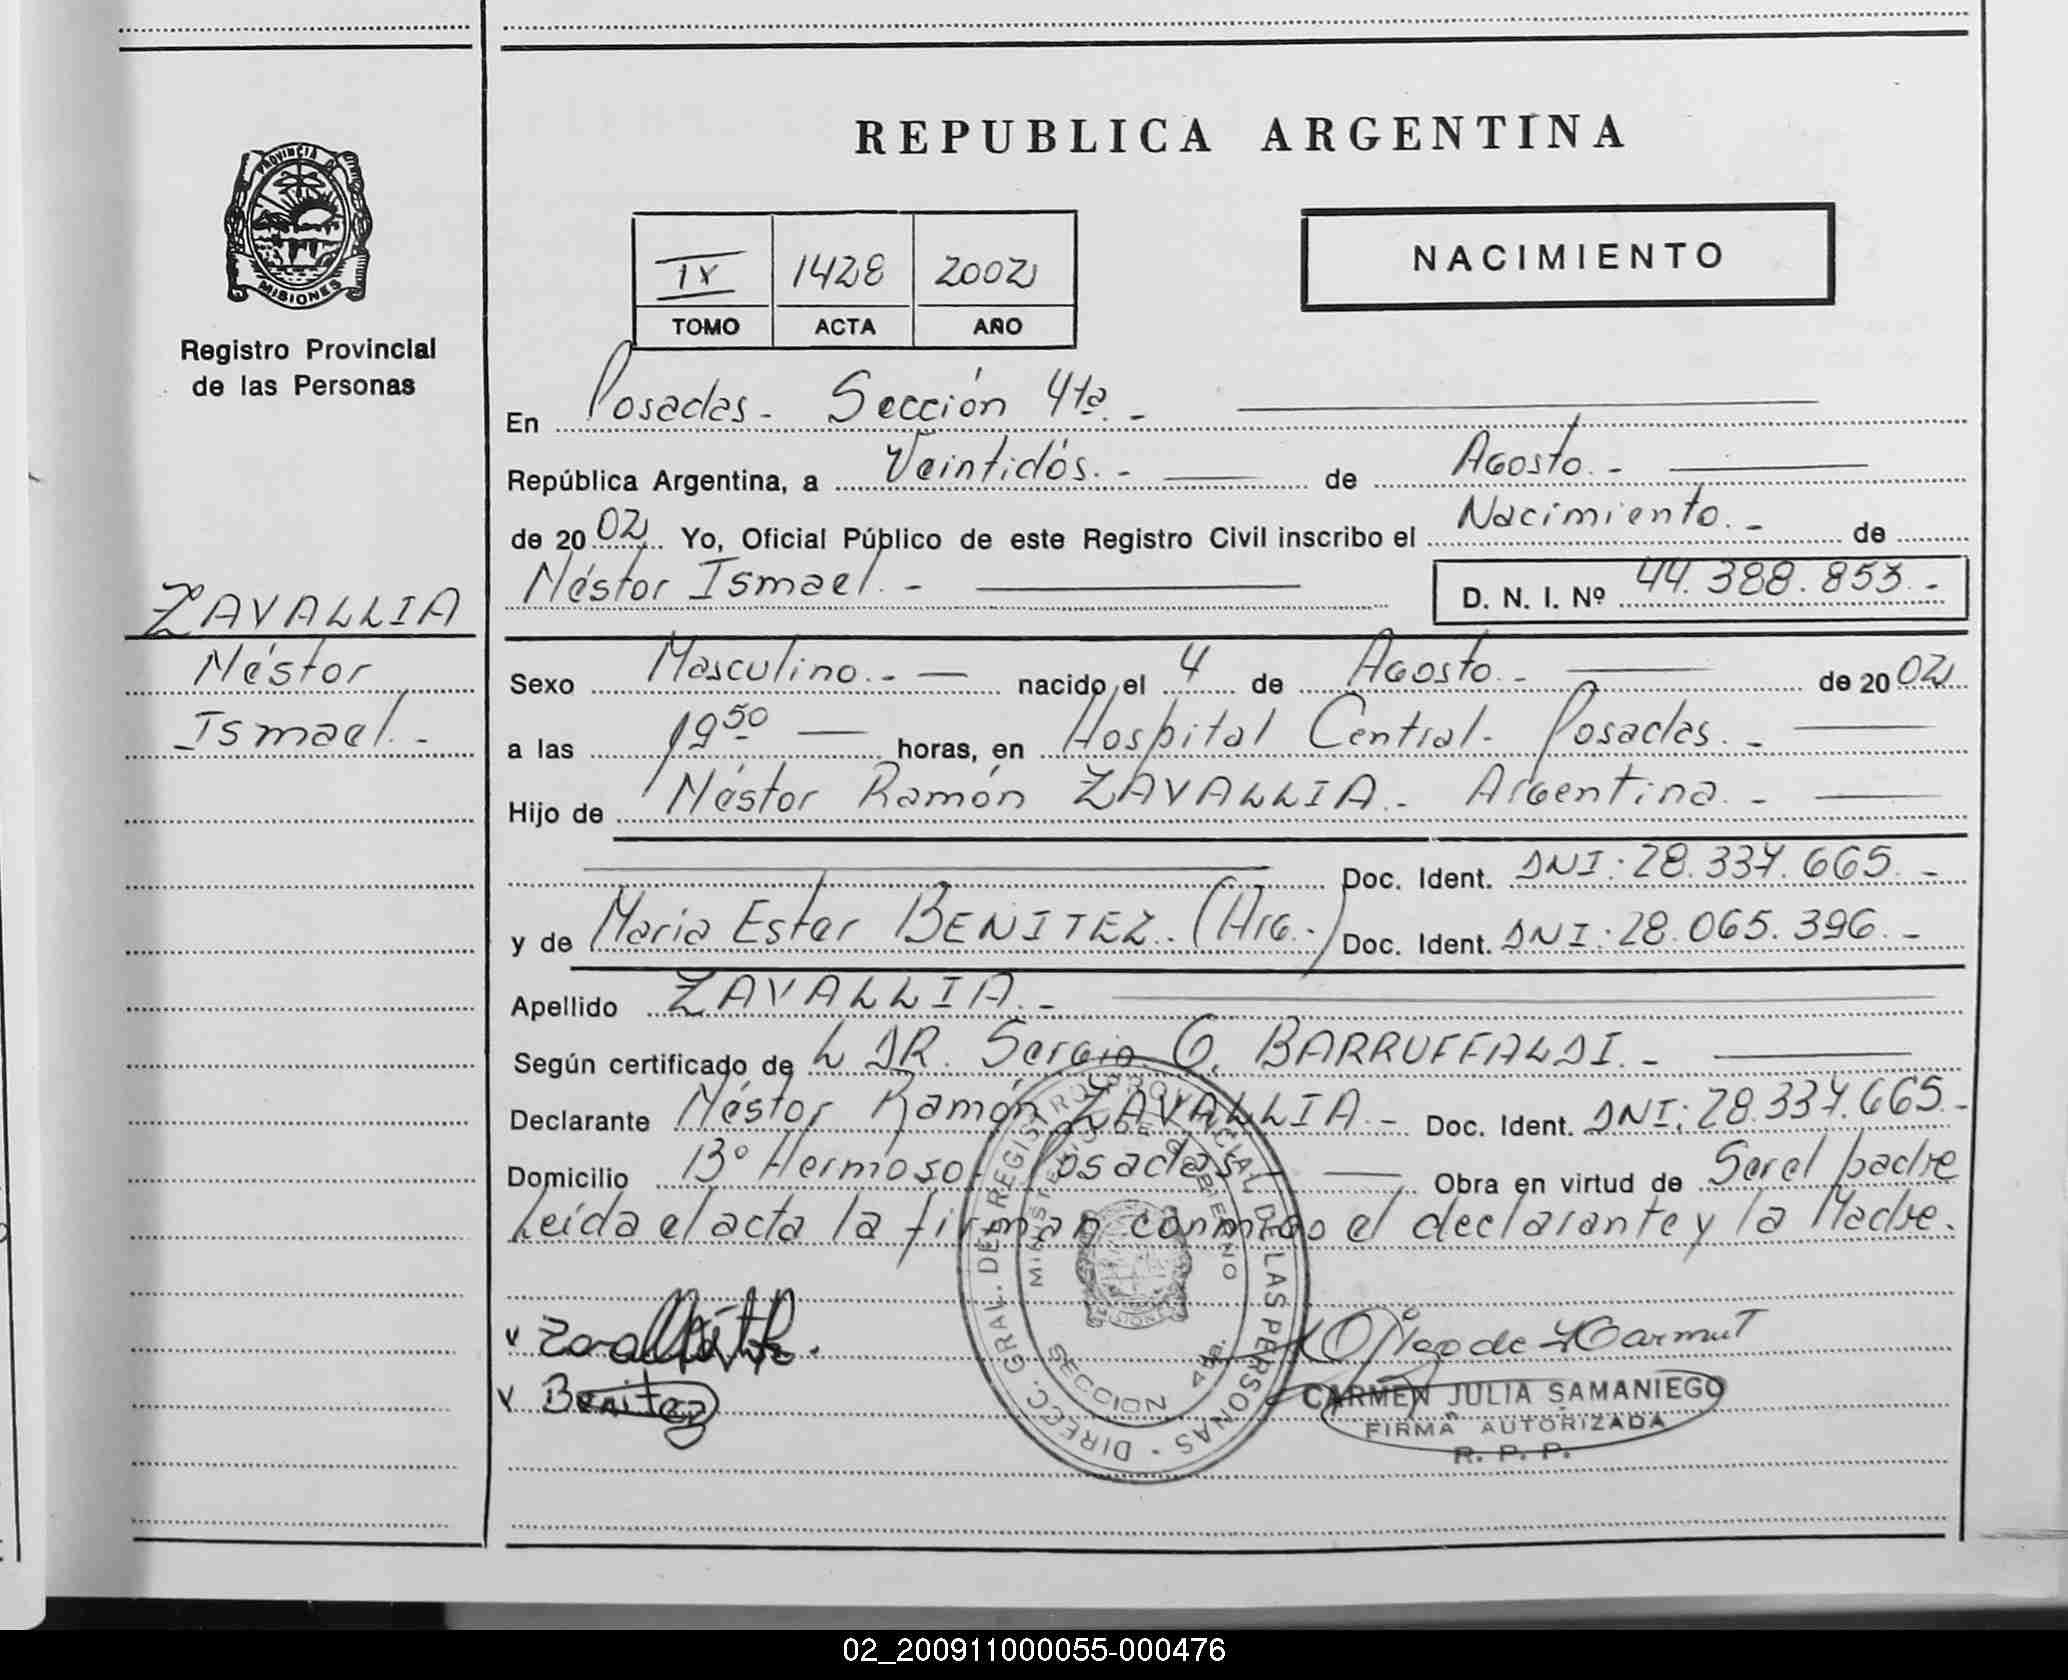 REPUBLICA ARGENTINA
PROVINCIA DE
MISIONES
Registro Provincial
de las Personas
IX 1428 2002
TOMO ACTA AÑO
NACIMIENTO
En Posadas - Sección 4ta. -
República Argentina, a Veintidós. - de Agosto. -
de 20 02 Yo, Oficial Público de este Registro Civil inscribo el Nacimiento. - de
Néstor Ismael. - D. N. I. Nº 44.388.853. -
ZAVALLIA
Néstor
Ismael. -
Sexo Masculino. - nacido el 4 de Agosto. - de 20 02
a las 19 50 horas, en Hospital Central - Posadas. -
Hijo de Néstor Ramón ZAVALLIA. - Argentina. -
Doc. Ident. DNI: 28.337.665. -
y de María Ester BENITEZ. (Arg.-) Doc. Ident. DNI: 28.065.396. -
Apellido ZAVALLIA. -
Según certificado de L DR. Sergio G. BARRUFFALDI. -
Declarante Néstor Ramón ZAVALLIA. - Doc. Ident. DNI: 28.337.665. -
Domicilio Bº Hermoso - Posadas - Obra en virtud de Ser el padre
Leída el acta la firman conmigo el declarante y la Madre.
DIREC. GRAL. DEL REGISTRO PROVINCIAL DE LAS PERSONAS
MINISTERIO DE GOBIERNO
SECCION 4ta.
Benitez
CARMEN JULIA SAMANIEGO
FIRMA AUTORIZADA
R. P. P.
02_200911000055-000476